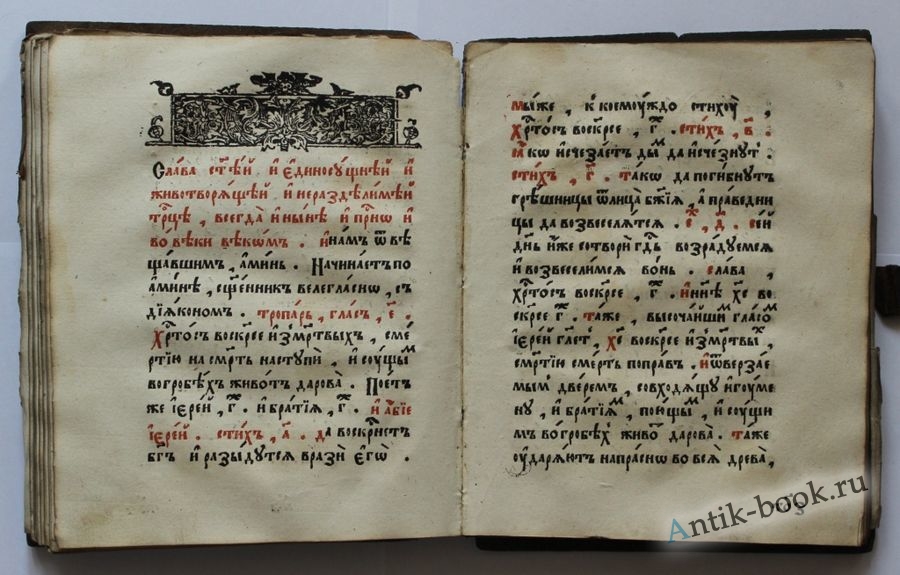 Сла́ва ст҃ѣ́й и҆ є҆диносу́щнѣй и҆
животворѧ́щей и҆ нераздѣли́мѣй
трⷪ҇цѣ , всегда̀ и҆ ны́нѣ и҆ при́снѡ и҆
во вѣ́ки вѣкѡ́мъ . и҆ на́мъ ѿвѣ
ща́вшимъ , а҆ми́нь . Начина́етъ по
а҆ми́нѣ , сщ҃е́нникъ велегла́снѡ , съ
дїѧ́кономъ . тропа́рь , гла́съ , є҃ .
Хрⷭ҇то́съ воскре́се и҆з̾ме́ртвыхъ , сме́
ртїю на сме́рть наступѝ , и҆ сꙋ́щымъ
во гробѣ́хъ живо́тъ дарова̀ . Пое́тъ
же і҆ере́й , г҃ . и҆ бра́тїѧ , г҃ . и҆ а҆́бїе
і҆ере́й . сти́хъ , а҃ . да воскре́снетъ
бг҃ъ и҆ разы́дутсѧ вразѝ є҆гѡ̀ .
мы́же , к коемꙋ́ждо стихꙋ̀ ,
Хрⷭ҇то́съ воскре́се , г҃ . сти́хъ , в҃ .
ꙗ҆́кѡ и҆счеза́етъ ды́мъ да и҆сче́знꙋтъ .
сти́хъ , г҃ . та́кѡ да поги́бнꙋтъ
грѣ́шницы ѿ лица̀ бж҃їѧ , а҆ првⷣени
цы да возвеселѧ́тсѧ . с , д҃ . се́й
дн҃ь и҆́же сотворѝ гдⷭ҇ь возра́дꙋемсѧ
и҆ возвесели́мсѧ во́нь . сла́ва ,
хрⷭ҇то́съ воскре́се , г҃ . и҆ ны́нѣ хрⷭ҇то́съ во
скре́се г҃ . та́же , высоча́йшимъ гла́сомъ
і҆ере́й гл҃етъ , хрⷭ҇то́съ воскре́се и҆з̾ме́ртвыхъ
сме́ртїю сме́рть попра́въ . и҆ ѿверза́е
мымъ две́ремъ , совходѧ́щꙋ и҆гꙋ́ме
нꙋ , и҆ бра́тїѧмъ , пою́щымъ , и҆ сꙋ́щи
мъ во гробѣ́хъ живо́тъ дарова̀ . та́же
оу҆дарѧ́ютъ напра́снѡ во всѧ̀ древа̀ ,
Antik-book.ru